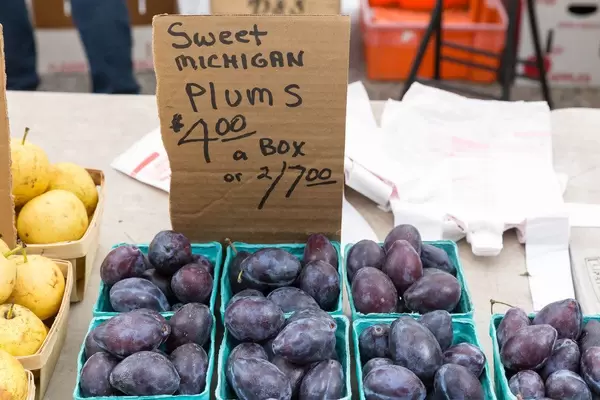 Sweet
MICHIGAN
Plums
$4.00
a BOX
or 2/7.00